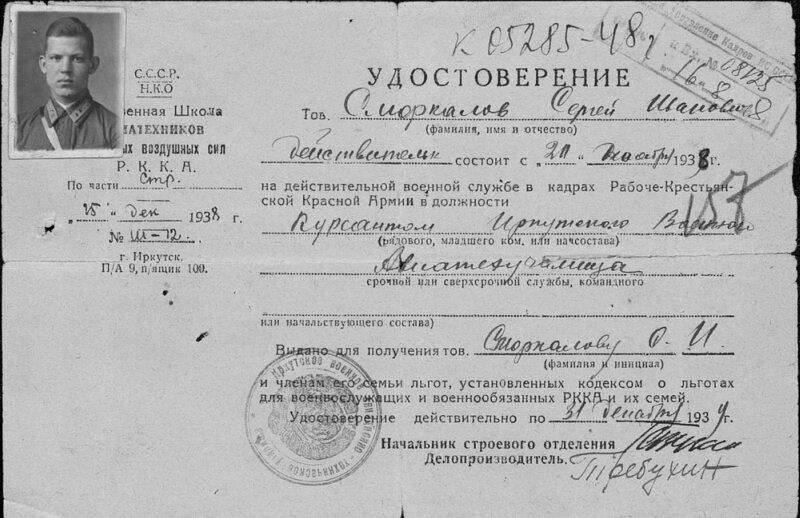 К 05285-48г
08128
16 8 8
С.С.С.Р.
Н.К.О
венная Школа
МАТЕХНИКОВ
ых воздушных сил
Р. К. К. А.
По части Стр.
"25" Дек 1938 г.
№ III-12.
г. Иркутск.
П/А 9, п/ящик 109.
УДОСТОВЕРЕНИЕ
Тов. Сморкалов Сергей
(фамилия, имя и отчество)
действительк состоит с "20" Ноября 1938 г.
на действительной военной службе в кадрах Рабоче-Крестьян-
ской Красной Армии в должности
157
Курсантом Иркутского Военного
(рядового, младшего ком. или начсостава)
Авиатехучилища
срочной или сверхсрочной службы, командного
или начальствующего состава)
Выдано для получения тов. Сморкалову С. И.
(фамилия и инициал)
и членам его семьи льгот, установленных кодексом о льготах
для военнослужащих и военнообязанных РККА и их семей.
Удостоверение действительно по 31 Декабря 1939 г.
Начальник строевого отделения
Делопроизводитель. Требухин